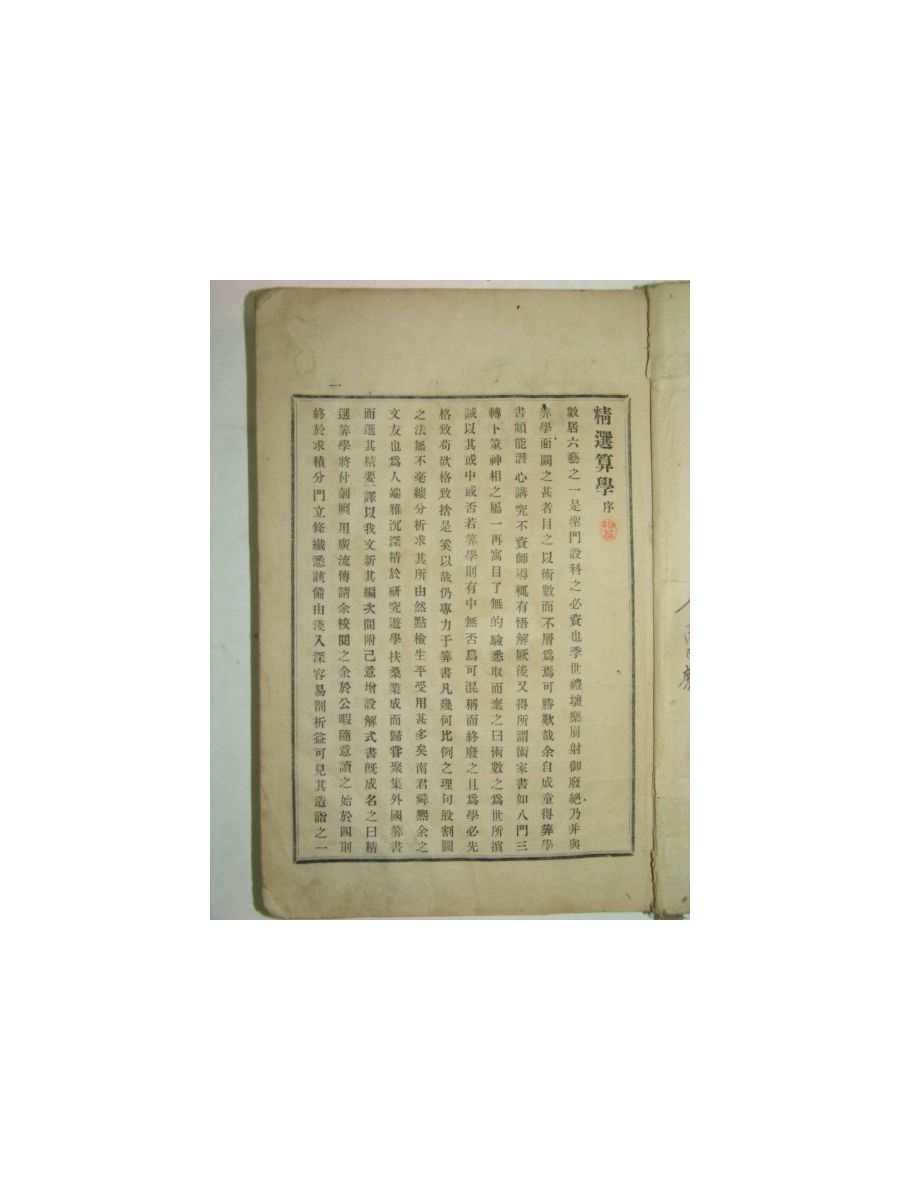 精選算學 序
數居六藝之一是聖門設科之必資也季世禮壞樂崩射御廢絕乃并與
筭學而闕之甚者目之以術數而不屑爲焉可勝歎哉余自成童得筭學
書頗能潛心講究不資師導輒有悟解厥後又得所謂術家書如八門三
轉卜筮神相之屬一再寓目了無的驗悉取而棄之曰術數之爲世所擯
誠以其或中或否若筭學則有中無否爲可混稱而終廢之且爲學必先
格致苟欲格致捨是奚以哉仍專力于筭書凡幾何比例之理句股割圜
之法無不毫縷分析求其所由然點檢生平受用甚多矣南君舜熙余之
文友也爲人端雅沉深精於研究遊學扶桑業成而歸嘗聚集外國筭書
而選其精要譯以我文新其編次間附己意增設解式書旣成名之曰精
選筭學將付剞劂用廣流傳請余校閱之余於公暇隨意讀之始於四則
終於求積分門立條纖悉該備由淺入深容易剖析益可見其造詣之一
一